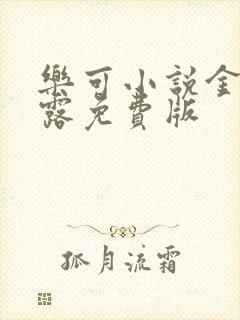 樂可小說金
露免費版
孤月流霜